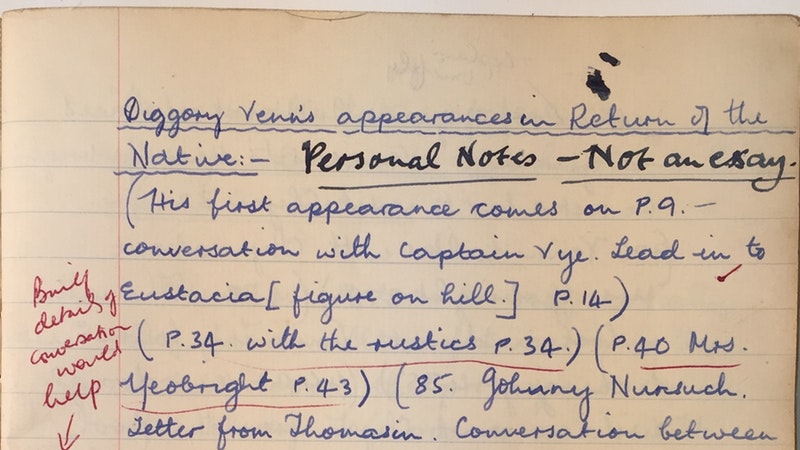 Diggory Venn's appearances in Return of the
Native:- Personal Notes - Not an essay.
(His first appearance comes on P.9. -
conversation with Captain Vye. Lead in to
Eustacia [figure on hill.] P.14)
(P.34. with the rustics P.34.) (P.40 Mrs.
Yeobright P.43) (85. Johnny Nunsuch.
Letter from Thomasin. Conversation between
Brief
details of
conversation
would
help